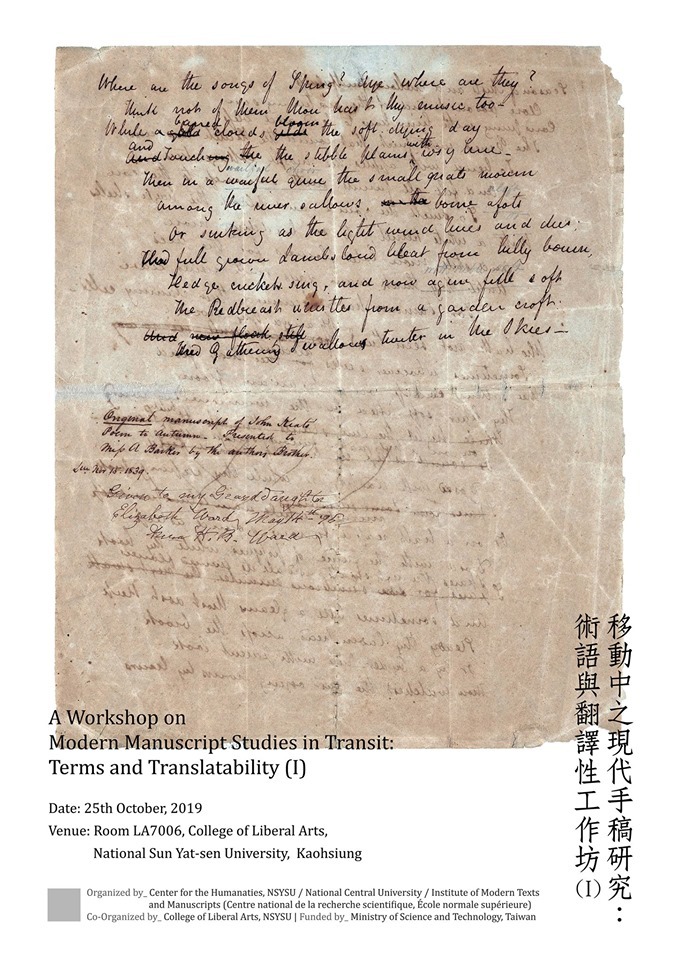 Where are the songs of Spring? Aye where are they?
Think not of them thou hast thy music too—
barred bloom
While a gold clouds gilds the soft dying day
and with
And Touching the the stibble plains rosy hue—
Then in a wailful quire the small gnats mourn
among the river sallows, on the borne afots
Or sinking as the light wind lives and dies;
full grown Lambs loud bleat from hilly bourn,
Hedge crickets sing, and now again full soft
The Redbreast whistles from a garden croft:
And new flock still
And Gathering Swallows twitter in the Skies—
Original manuscript of John Keats
Poem to Autumn. Presented to
Miss A Barker by the authors Brother.
Nov 15. 1839.
Given to my Granddaughter
Elizabeth Ward May 14th 96
Anna H. B. Ward
移動中之現代手稿研究：
術語與翻譯性工作坊(I)
A Workshop on
Modern Manuscript Studies in Transit:
Terms and Translatability (I)
Date: 25th October, 2019
Venue: Room LA7006, College of Liberal Arts,
National Sun Yat-sen University, Kaohsiung
Organized by_ Center for the Humanaties, NSYSU / National Central University / Institute of Modern Texts
and Manuscripts (Centre national de la recherche scientifique, École normale supérieure)
Co-Organized by_ College of Liberal Arts, NSYSU | Funded by_ Ministry of Science and Technology, Taiwan